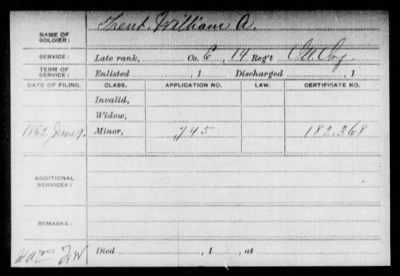 NAME OF SOLDIER: Trent, William A.
SERVICE: Late rank, Co. E, 14 Reg't Ill. Cav
TERM OF SERVICE: Enlisted , 1 Discharged , 1
DATE OF FILING. CLASS. APPLICATION NO. LAW. CERTIFICATE NO.
Invalid,
Widow,
1862, June 9. Minor, 745 182.368
ADDITIONAL SERVICES:
REMARKS:
Died , 1 , at